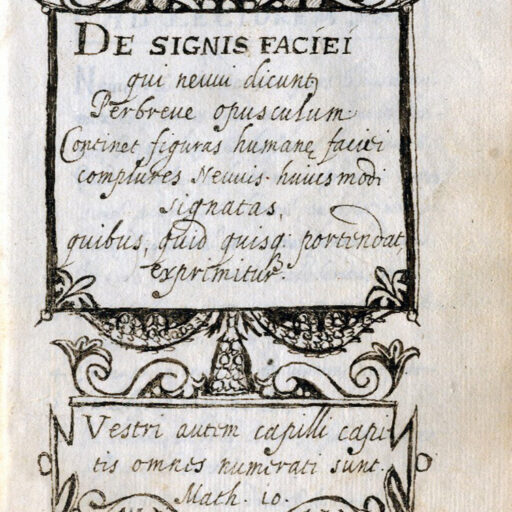 DE SIGNIS FACIEI
qui nevui dicunt
Perbreve opusculum
Continet figuras humanę faciei
complures Nevuis huiusmodi
signatas,
quibus, quid quisq: portendat,
exprimitur.
Vestri autem capilli capi
tis omnes numerati sunt.
Math. 10.